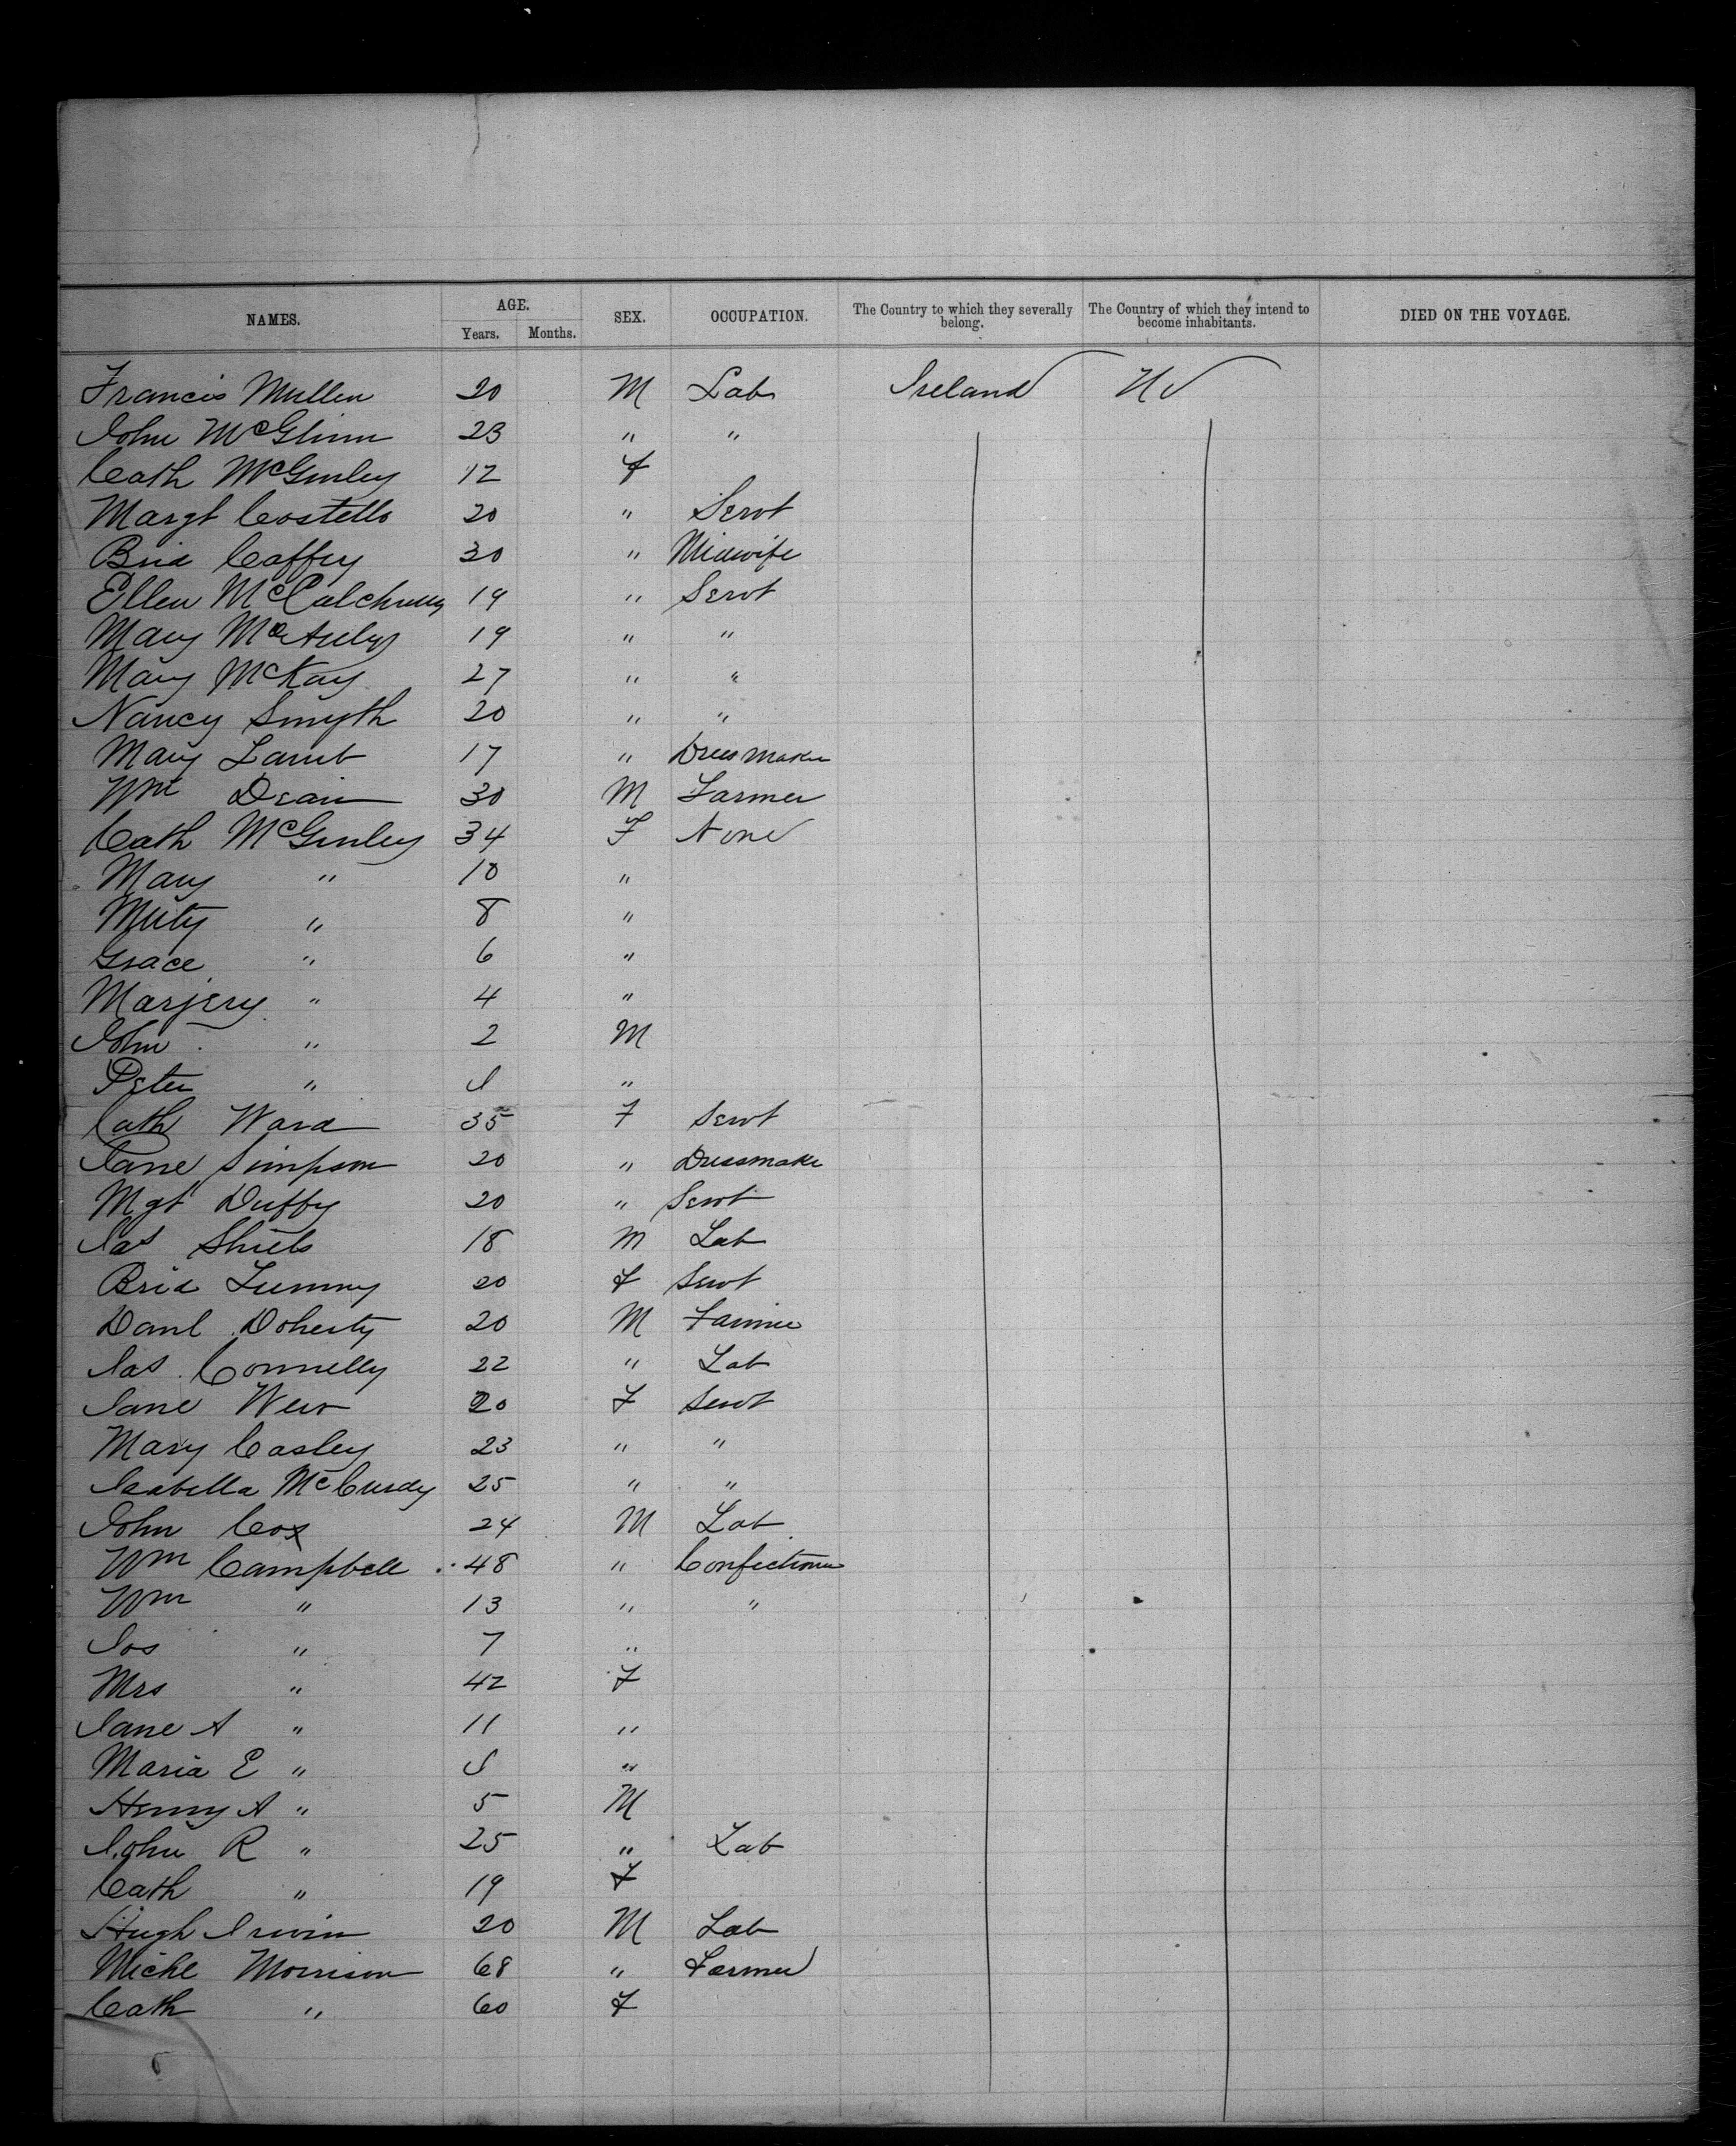 NAMES. AGE. SEX. OCCUPATION. The Country to which they severally belong. The Country of which they intend to become inhabitants. DIED ON THE VOYAGE.
Years. Months.
Francis Mullen 20 M Lab Ireland U S
John McGlinn 23 " "
Cath McGinley 12 f
Margt Costello 20 " Servt
Brid Caffey 30 " Midwife
Ellen 19 " Servt
Mary McAuley 19 " "
Mary McKay 27 " "
Nancy Smyth 20 " "
Mary Lamb 17 " Dressmaker
Wm Dean 30 M Farmer
Cath McGinley 34 F None
Mary " 10 "
" 8 "
Grace " 6 "
Marjery " 4 "
John " 2 M
Peter " I "
Cath Ward 35 F Servt
Jane Simpson 20 " Dressmake
Mgt Duffy 20 " Servt
Jas Shiels 18 M Lab
Brid 20 F Servt
Danl Doherty 20 M Farmer
Jas Connelly 22 " Lab
Jane Weir 20 F Servt
Mary Casley 23 " "
Isabella McCurdy 25 " "
John Cox 24 M Lab
Wm Campbell 48 " Confectioner
Wm " 13 " "
Jos " 7 "
Mrs " 42 F
Jane A " 11 "
Maria E " "
Henry A " 5 M
John R " 25 " Lab
Cath " 19 F
Hugh Irwin 20 M Lab
Michl Morrison 68 " Farmer
Cath " 60 F